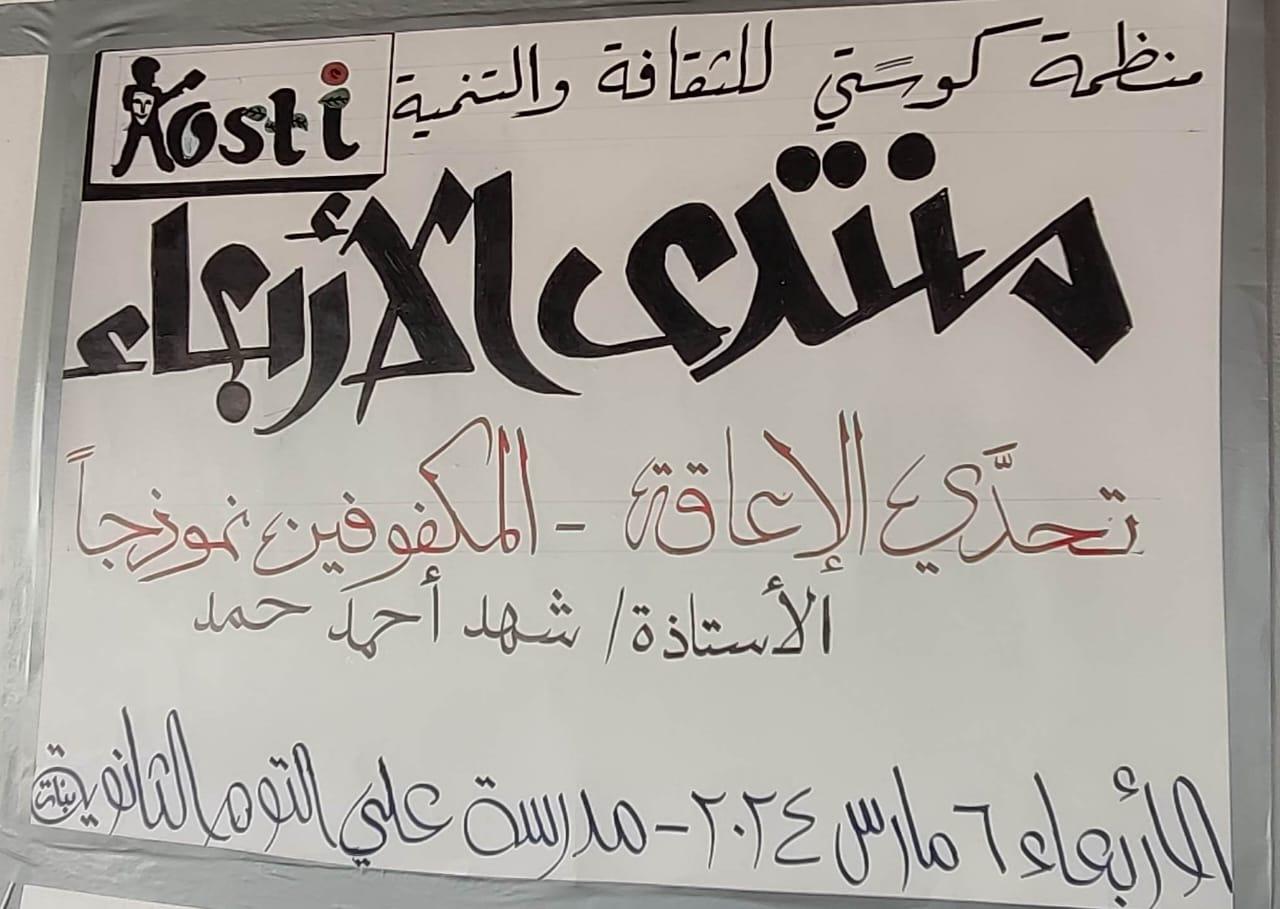 منظمة كوستي للثقافة والتنمية
Kosti
منتدى الأربعاء
تحدَّي الإعاقة - المكفوفين نموذجاً
الأستاذة/ شهد أحمد حمد
الأربعاء ٦ مارس ٢٠٢٤ - مدرسة علي التوم الثانوية بنات